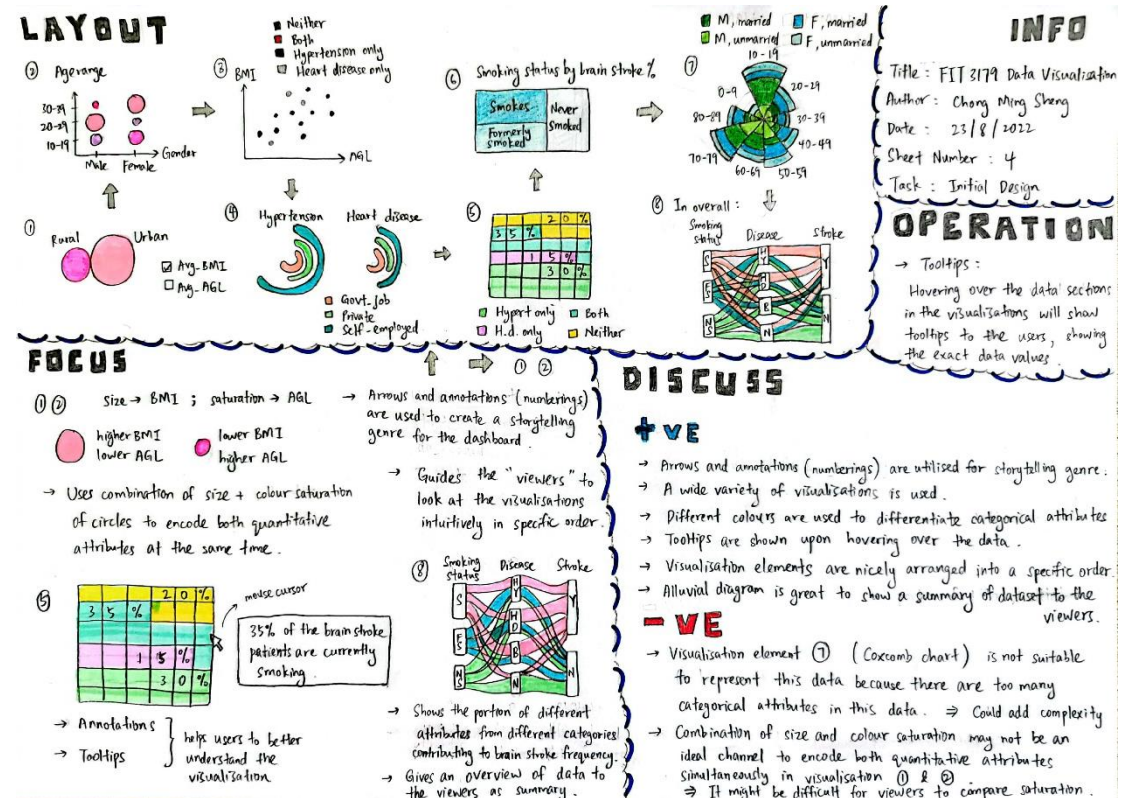 LAYOUT
② Age range
30-39
20-29
10-19
Male Female
Gender
①
Rural
Urban
Avg_BMI
Avg_AGL
③ BMI
Neither
Both
Hypertension only
Heart disease only
AGL
④
Hypertension Heart disease
Govt_job
Private
Self-employed
⑥ Smoking status by brain stroke %
Smokes
Formerly smoked
Never smoked
⑤
2 0 %
3 5 %
1 5 %
3 0 %
Hypert only Both
H.d. only Neither
⑦
M, married F, married
M, unmarried F, unmarried
10-19
0-9
20-29
80-89
30-39
40-49
70-79
60-69 50-59
⑧ In overall :
Smoking status Disease Stroke
S
FS
NS
HY
HD
B
N
Y
N
INFO
Title : FIT3179 Data Visualisation
Author : Chong Ming Sheng
Date : 23/8/2022
Sheet Number : 4
Task : Initial Design
OPERATION
→ Tooltips :
Hovering over the data sections
in the visualisations will show
tooltips to the users, showing
the exact data values.
FOCUS
① ② size → BMI ; saturation → AGL
higher BMI
lower AGL
lower BMI
higher AGL
→ Uses combination of size + colour saturation
of circles to encode both quantitative
attributes at the same time.
⑤
2 0 %
3 5 %
1 5 %
3 0 %
mouse cursor
35% of the brain stroke
patients are currently
smoking
→ Annotations
→ Tooltips
helps users to better
understand the
visualisation
① ②
→ Arrows and annotations (numberings)
are used to create a storytelling
genre for the dashboard.
→ Guides the "viewers" to
look at the visualisations
intuitively in specific order.
⑧
Smoking status Disease Stroke
S
FS
NS
HY
HD
B
N
Y
N
→ Shows the portion of different
attributes from different categories
contributing to brain stroke frequency.
→ Gives an overview of data to
the viewers as summary.
DISCUSS
+VE
→ Arrows and annotations (numberings) are utilised for storytelling genre.
→ A wide variety of visualisations is used.
→ Different colours are used to differentiate categorical attributes
→ Tooltips are shown upon hovering over the data.
→ Visualisation elements are nicely arranged into a specific order.
→ Alluvial diagram is great to show a summary of dataset to the
viewers.
-VE
→ Visualisation element ⑦ (Coxcomb chart) is not suitable
to represent this data because there are too many
categorical attributes in this data. ⇒ Could add complexity
→ Combination of size and colour saturation may not be an
ideal channel to encode both quantitative attributes
simultaneously in visualisation ① & ②
⇒ It might be difficult for viewers to compare saturation.